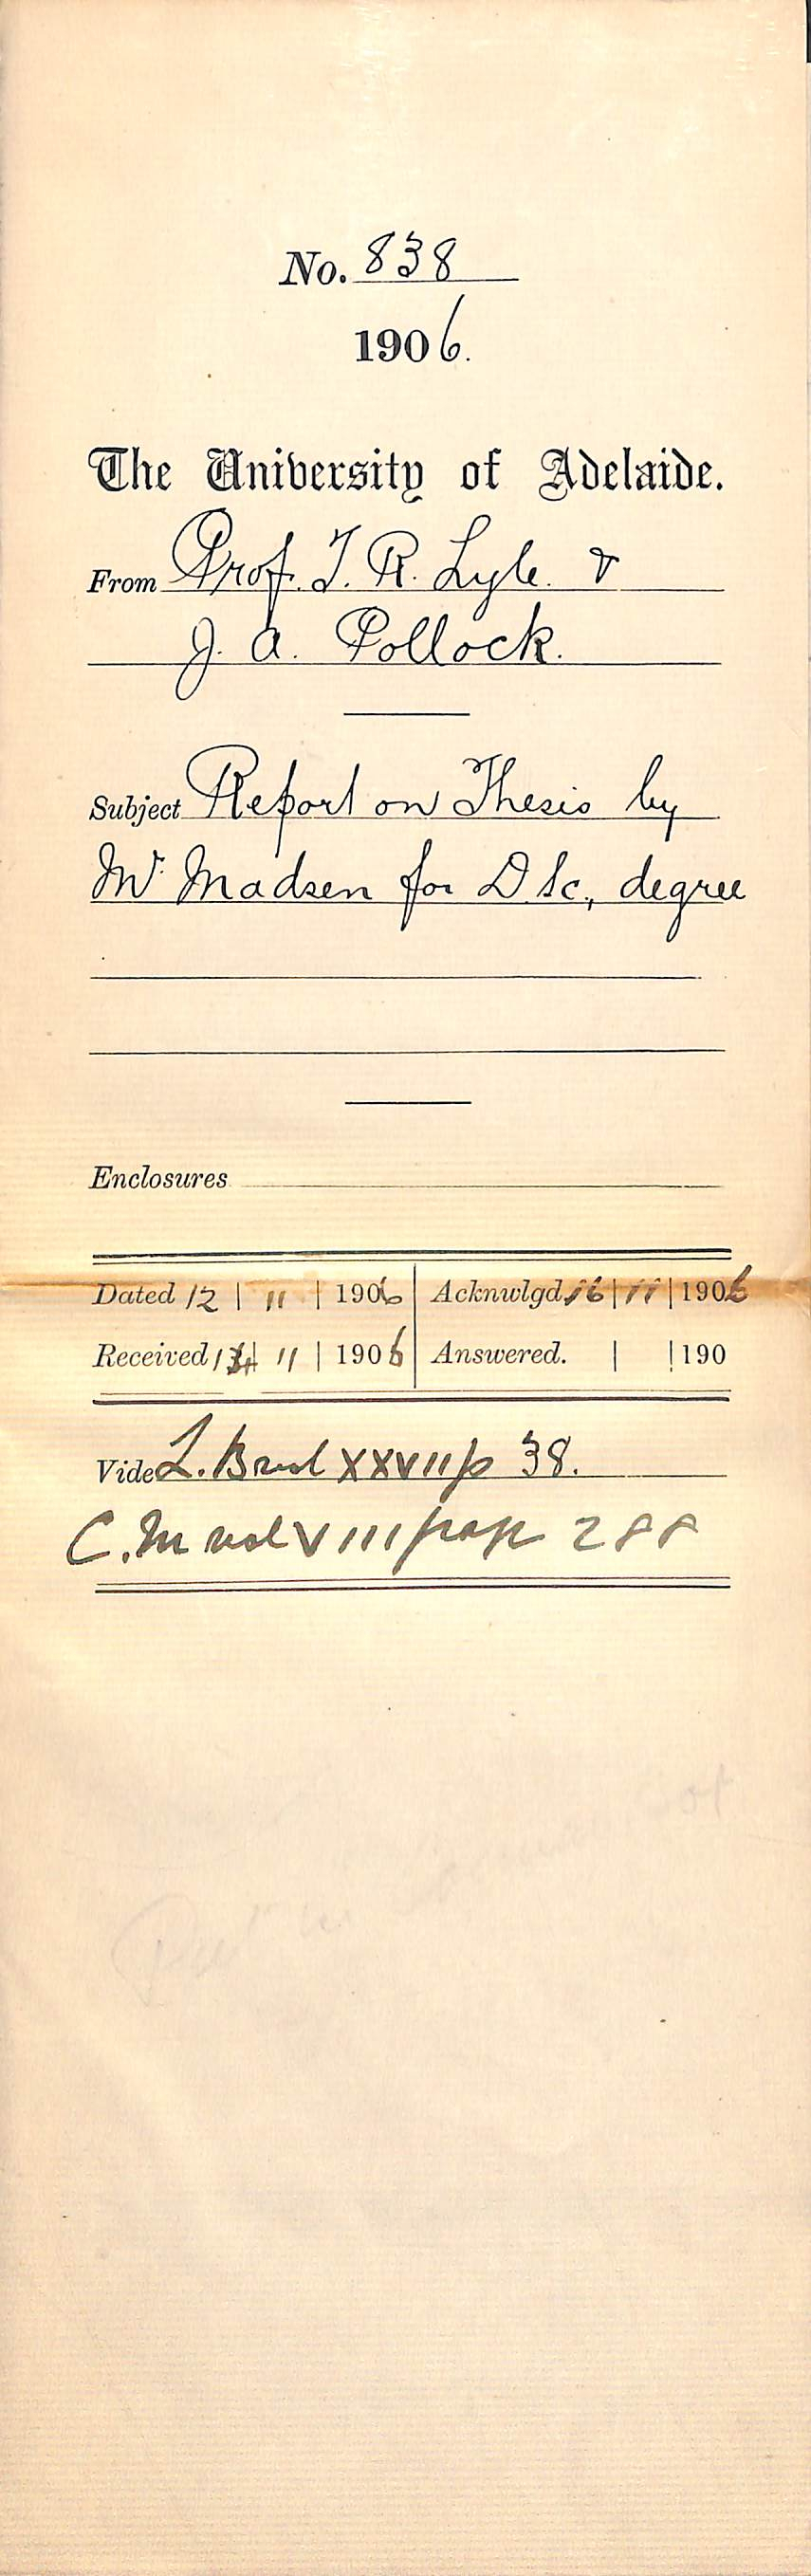 No. 838
1906.
The University of Adelaide.
From Prof. T. R. Lyle. &
J. A. Pollock.
Subject Report on Thesis by
Mr Madsen for D.Sc., degree
Enclosures
Dated 12 | 11 | 1906 Acknwlgd 16 | 11 | 1906
Received 14 | 11 | 1906 Answered. | | 190
Vide L. B vol XXVII p 38.
C. M vol VIII page 288